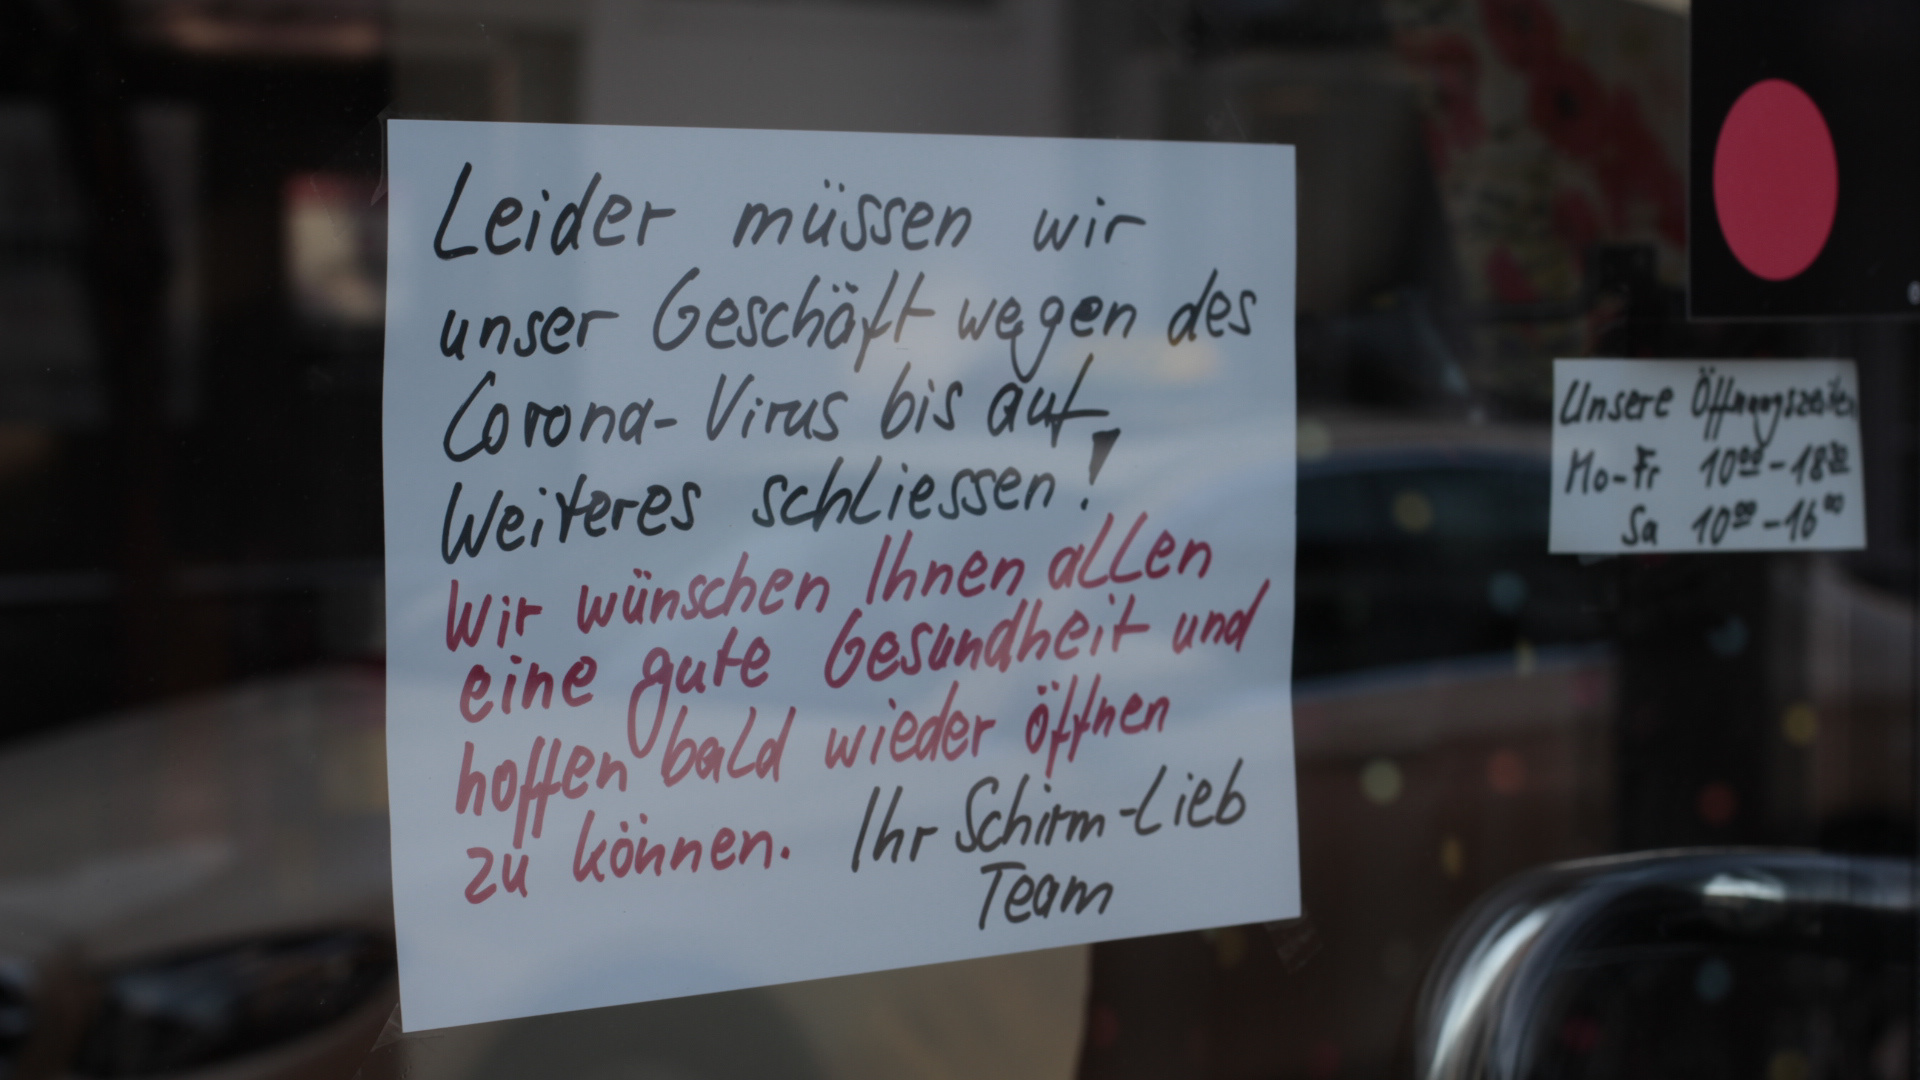 Leider müssen wir
unser Geschäft wegen des
Corona-Virus bis auf
Weiteres schliessen!
Wir wünschen Ihnen allen
eine gute Gesundheit und
hoffen bald wieder öffnen
zu können. Ihr Schirm-Lieb
Team
Unsere Öffnungszeiten
Mo-Fr 10⁰⁰-18³⁰
Sa 10⁰⁰-16⁰⁰